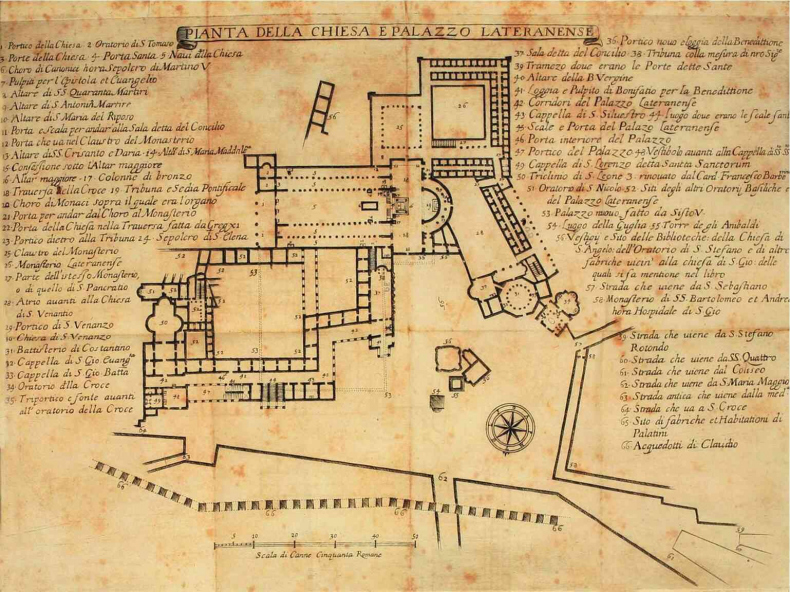 PIANTA DELLA CHIESA E PALAZZO LATERANENSE
1 Portico della Chiesa 2 Oratorio di S Tomaso
3 Porte della Chiesa 4 Porta Santa 5 Naui alla Chiesa
6 Choro di Canonici hora Sepolcro di Martino V
7 Pulpiti per l'Epistola et Euangelio
8 Altare di SS Quaranta Martiri
9 Altare di S Antoni A. Martire
10 Altare di S Maria del Riposo
11 Porta e scala per andar alla Sala detta del Concilio
12 Porta che ua nel Claustro del Monasterio
13 Altare di SS Crisanto e Daria 14 di S. Maria Maddal
15 Confessione sotto l'Altar maggiore
16 Altar maggiore 17 Colonne di bronzo
18 Trauersa della Croce 19 Tribuna e Sedia Pontificale
20 Choro di Monaci sopra il quale era l'organo
21 Porta per andar dal Choro al Monasterio
22 Porta della Chiesa nella Trauersa fatta da Greg XI
23 Portico dietro alla Tribuna 24 Sepolcro di S Elena
25 Claustro del Monasterio
26 Monasterio Lateranense
27 Parte dell'istesso Monastero,
o di quello di S Pancratio
28 Atrio auanti alla Chiesa
di S. Venantio
29 Portico di S Venanzo
30 Chiesa di S Venanzo
31 Battisterio di Costantino
32 Cappella di S Gio Euang
33 Cappella di S Gio Batta
34 Oratorio della Croce
35 Triportico e fonte auanti
all' oratorio della Croce
36 Portico nouo e loggia della Benedittione
37 Sala detta del Concilio 38 Tribuna colla mesura di nro Sig
39 Tramezo doue erano le Porte dette Sante
40 Altare della B Vergine
41 Loggia e Pulpito di Bonifatio per la Benedittione
42 Corridori del Palazzo Lateranense
43 Cappella di S Siluestro 44 luogo doue erano le scale sant
45 Scale e Porta del Palazo Lateranense
46 Porta interiore del Palazzo
47 Portico del Palazzo 48 Vestibolo auanti alla Cappella di SS SS
49 Cappella di S Lorenzo detta Sancta Sanctorum
50 Triclinio di S Leone 3 rinouato dal Card Francesco Barb
51 Oratorio di S Nicolo 52 Siti degli altri Oratory Basiliche e
del Palazzo Lateranense
53 Palazzo nuouo fatto da Sisto V
54 Luogo della Guglia 55 Torre de gli Anibaldi
56 Vestigy e Sito delle Biblioteche della Chiesa di
S Angelo dell'Oratorio di S Stefano e di altre
fabriche uicin alla chiesa di S Gio delle
quali si fa mentione nel libro
57 Strada che uiene da S Sebastiano
58 Monasterio di SS Bartolomeo et Andrea
hora Hospidale di S Gio
59 Strada che uiene da S Stefano
Rotondo
60 Strada che uiene da SS Quattro
61 Strada che uiene dal Coliseo
62 Strada che uiene da S Maria Maggio
63 Strada antica che uiene dalla med
64 Strada che ua a S Croce
65 Sito di fabriche et Habitationi di
Palatini
66 Acquedotti di Claudio
Scala di Canne Cinquanta Romane
5 10 20 30 40 50